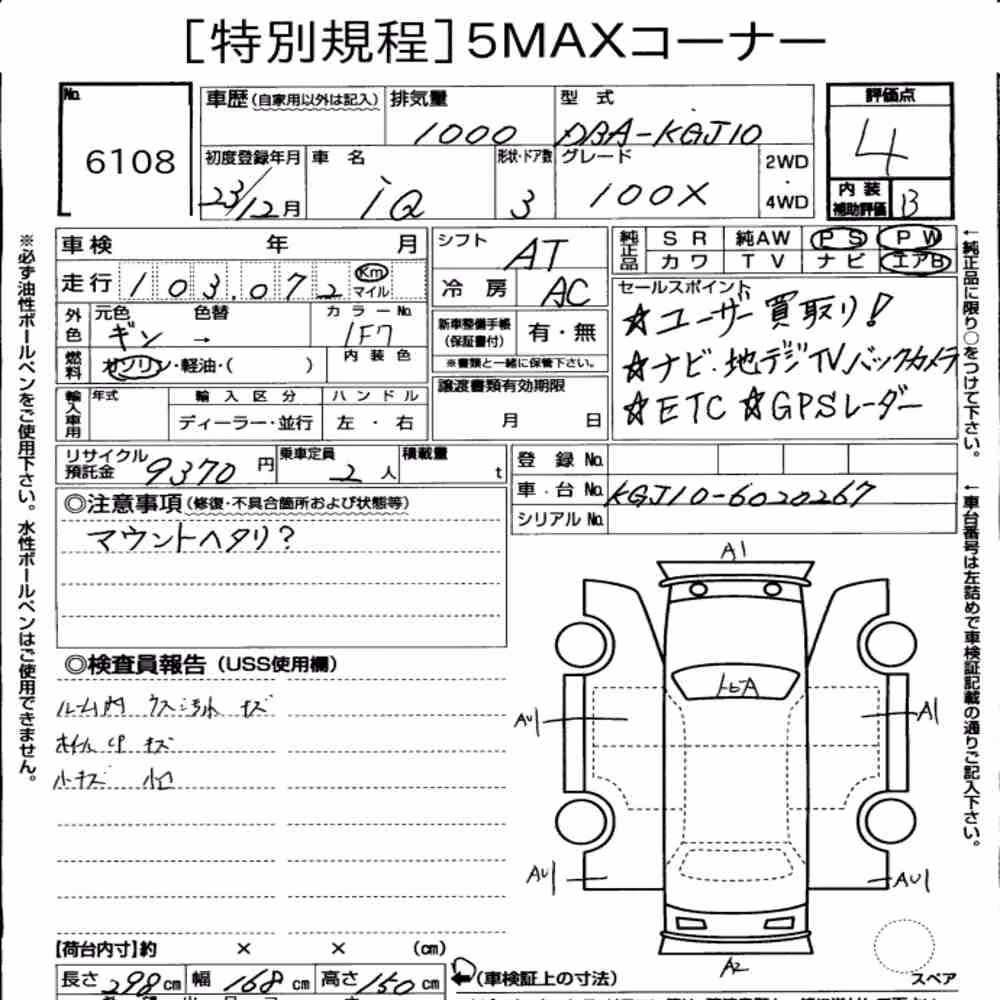 [特別規程]5MAXコーナー
No. 6108
車歴(自家用以外は記入) 排気量 1000 型式 DBA-KGJ10
評価点 4
初度登録年月 23/12月 車名 iQ 形状・ドア数 3 グレード 100X 2WD・4WD
内装補助評価 B
車検 年 月
シフト AT
純正品 SR 純AW PS PW
カワ TV ナビ エアB
走行 103.072 Km マイル
冷房 AC
セールスポイント
☆ユーザー買取り!
外色 元色 ギン → 色替 カラーNo. 1F7
新車整備手帳(保証書付) 有・無
※書類と一緒に保管下さい。
☆ナビ・地デジTVバックカメラ
燃料 ガソリン・軽油・( ) 内装色
譲渡書類有効期限
月 日
☆ETC ☆GPSレーダー
輸入車用 年式 輸入区分 ハンドル
ディーラー・並行 左・右
リサイクル預託金 9370円 乗車定員 2人 積載量 t
登録No.
車台No. KGJ10-6020267
シリアルNo.
◎注意事項(修復・不具合箇所および状態等)
マウントヘタリ?
◎検査員報告(USS使用欄)
ルーム内 ウス汚れ キズ
ホイルCP キズ
小キズ 凹
A1
AU1
A1
AU1
AU1
A2
スペア
【荷台内寸】約 × × (cm)
長さ 298cm 幅 168cm 高さ 150cm
←(車検証上の寸法)
※必ず油性ボールペンをご使用下さい。水性ボールペンはご使用できません。
←純正品に限り○をつけて下さい。
←車台番号は左詰めで車検証記載の通りご記入下さい。